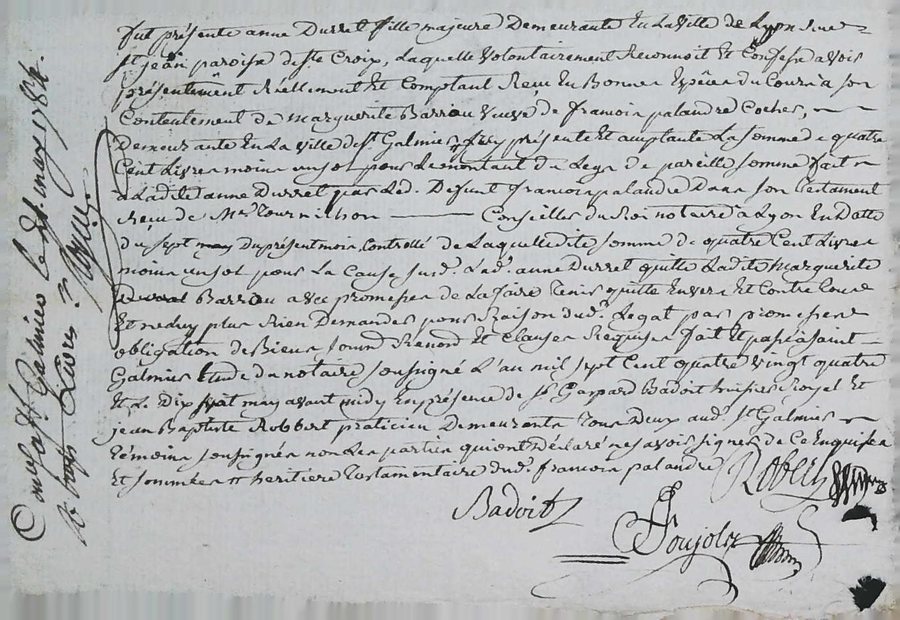 fut présente anne Durret fille majeure Demeurante En La Ville de Lyon rue
St jean paroisse de ste Croix, Laquelle Volontairement Reconnoit Et Confesse avoir
présentement Réellement Et Comptant Receu En Bonnes Espéces du Cours à son
Contentement de Marguerite Barrou Veuve de francois palandre Cocher,
Demeurante En La ville de St Galmier présente Et acceptante La somme de quatre
Cent Livres moins un sol pour Le montant du Legs de pareille somme fait
a Ladite anne Durret par Led. Defunt francois palandre Dans son testament
Receu de Me Tournilhon Conseiller du Roi notaire à Lyon En Datte
du sept du présent mois, Controllé de Laquelledite somme de quatre Cent Livres
moins un sol pour La Cause susd. Lad. anne Durret quitte Ladite Marguerite
Barrou avec promesse de La faire tenir quitte Envers Et Contre tous
Et ne Luy plus Rien Demander pour Raison dud. Legat par promesse
obligation de Biens soumn Renond Et Clauses Requises fait Et passé à saint
Galmier Etude du notaire soussigné L'an mil sept Cent quatre vingt quatre
Et Le Dix sept may avant midy En présence de Sr Gaspard Badoit huissier Royal Et
jean Baptiste Robbert praticien Demeurants tous Deux aud. St Galmier
témoins soussignés non Les parties qui ont Déclaré ne savoir signer de Ce Enquises
Et sommées heritiere testamentaire dud. francois palandre
Robert
Badoit
Poujols
Controllé à St Galmier le may 1784.